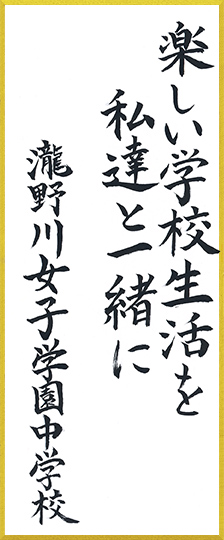 楽しい学校生活を
私達と一緒に
瀧野川女子学園中学校